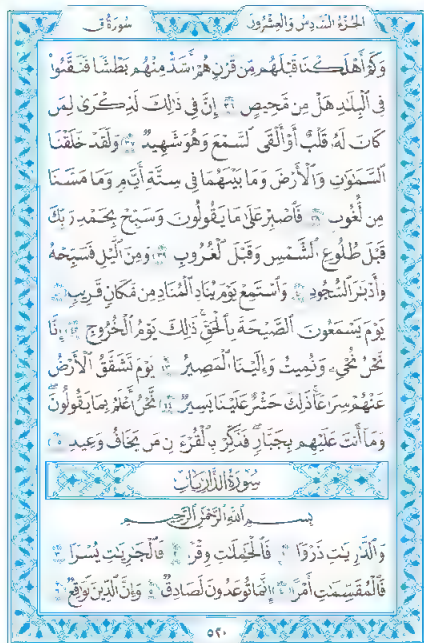 سُورَةُ ق الجُزْءُ السَّادِسُ وَالعِشْرُونَ
وَكَمْ أَهْلَكْنَا قَبْلَهُم مِّن قَرْنٍ هُمْ أَشَدُّ مِنْهُم بَطْشًا فَنَقَّبُوا۟
فِى ٱلْبِلَـٰدِ هَلْ مِن مَّحِيصٍ ٣٦ إِنَّ فِى ذَٰلِكَ لَذِكْرَىٰ لِمَن
كَانَ لَهُۥ قَلْبٌ أَوْ أَلْقَى ٱلسَّمْعَ وَهُوَ شَهِيدٌ ٣٧ وَلَقَدْ خَلَقْنَا
ٱلسَّمَـٰوَٰتِ وَٱلْأَرْضَ وَمَا بَيْنَهُمَا فِى سِتَّةِ أَيَّامٍ وَمَا مَسَّنَا
مِن لُّغُوبٍ ٣٨ فَٱصْبِرْ عَلَىٰ مَا يَقُولُونَ وَسَبِّحْ بِحَمْدِ رَبِّكَ
قَبْلَ طُلُوعِ ٱلشَّمْسِ وَقَبْلَ ٱلْغُرُوبِ ٣٩ وَمِنَ ٱلَّيْلِ فَسَبِّحْهُ
وَأَدْبَـٰرَ ٱلسُّجُودِ ٤٠ وَٱسْتَمِعْ يَوْمَ يُنَادِ ٱلْمُنَادِ مِن مَّكَانٍ قَرِيبٍ ٤١
يَوْمَ يَسْمَعُونَ ٱلصَّيْحَةَ بِٱلْحَقِّ ذَٰلِكَ يَوْمُ ٱلْخُرُوجِ ٤٢ إِنَّا
نَحْنُ نُحْىِۦ وَنُمِيتُ وَإِلَيْنَا ٱلْمَصِيرُ ٤٣ يَوْمَ تَشَقَّقُ ٱلْأَرْضُ
عَنْهُمْ سِرَاعًا ذَٰلِكَ حَشْرٌ عَلَيْنَا يَسِيرٌ ٤٤ نَّحْنُ أَعْلَمُ بِمَا يَقُولُونَ
وَمَآ أَنتَ عَلَيْهِم بِجَبَّارٍ فَذَكِّرْ بِٱلْقُرْءَانِ مَن يَخَافُ وَعِيدِ ٤٥
سُورَةُ الذَّارِيَاتِ
بِسْمِ ٱللَّهِ ٱلرَّحْمَـٰنِ ٱلرَّحِيمِ
وَٱلذَّٰرِيَـٰتِ ذَرْوًا ١ فَٱلْحَـٰمِلَـٰتِ وِقْرًا ٢ فَٱلْجَـٰرِيَـٰتِ يُسْرًا ٣
فَٱلْمُقَسِّمَـٰتِ أَمْرًا ٤ إِنَّمَا تُوعَدُونَ لَصَادِقٌ ٥ وَإِنَّ ٱلدِّينَ لَوَٰقِعٌ ٦
٥٢٠